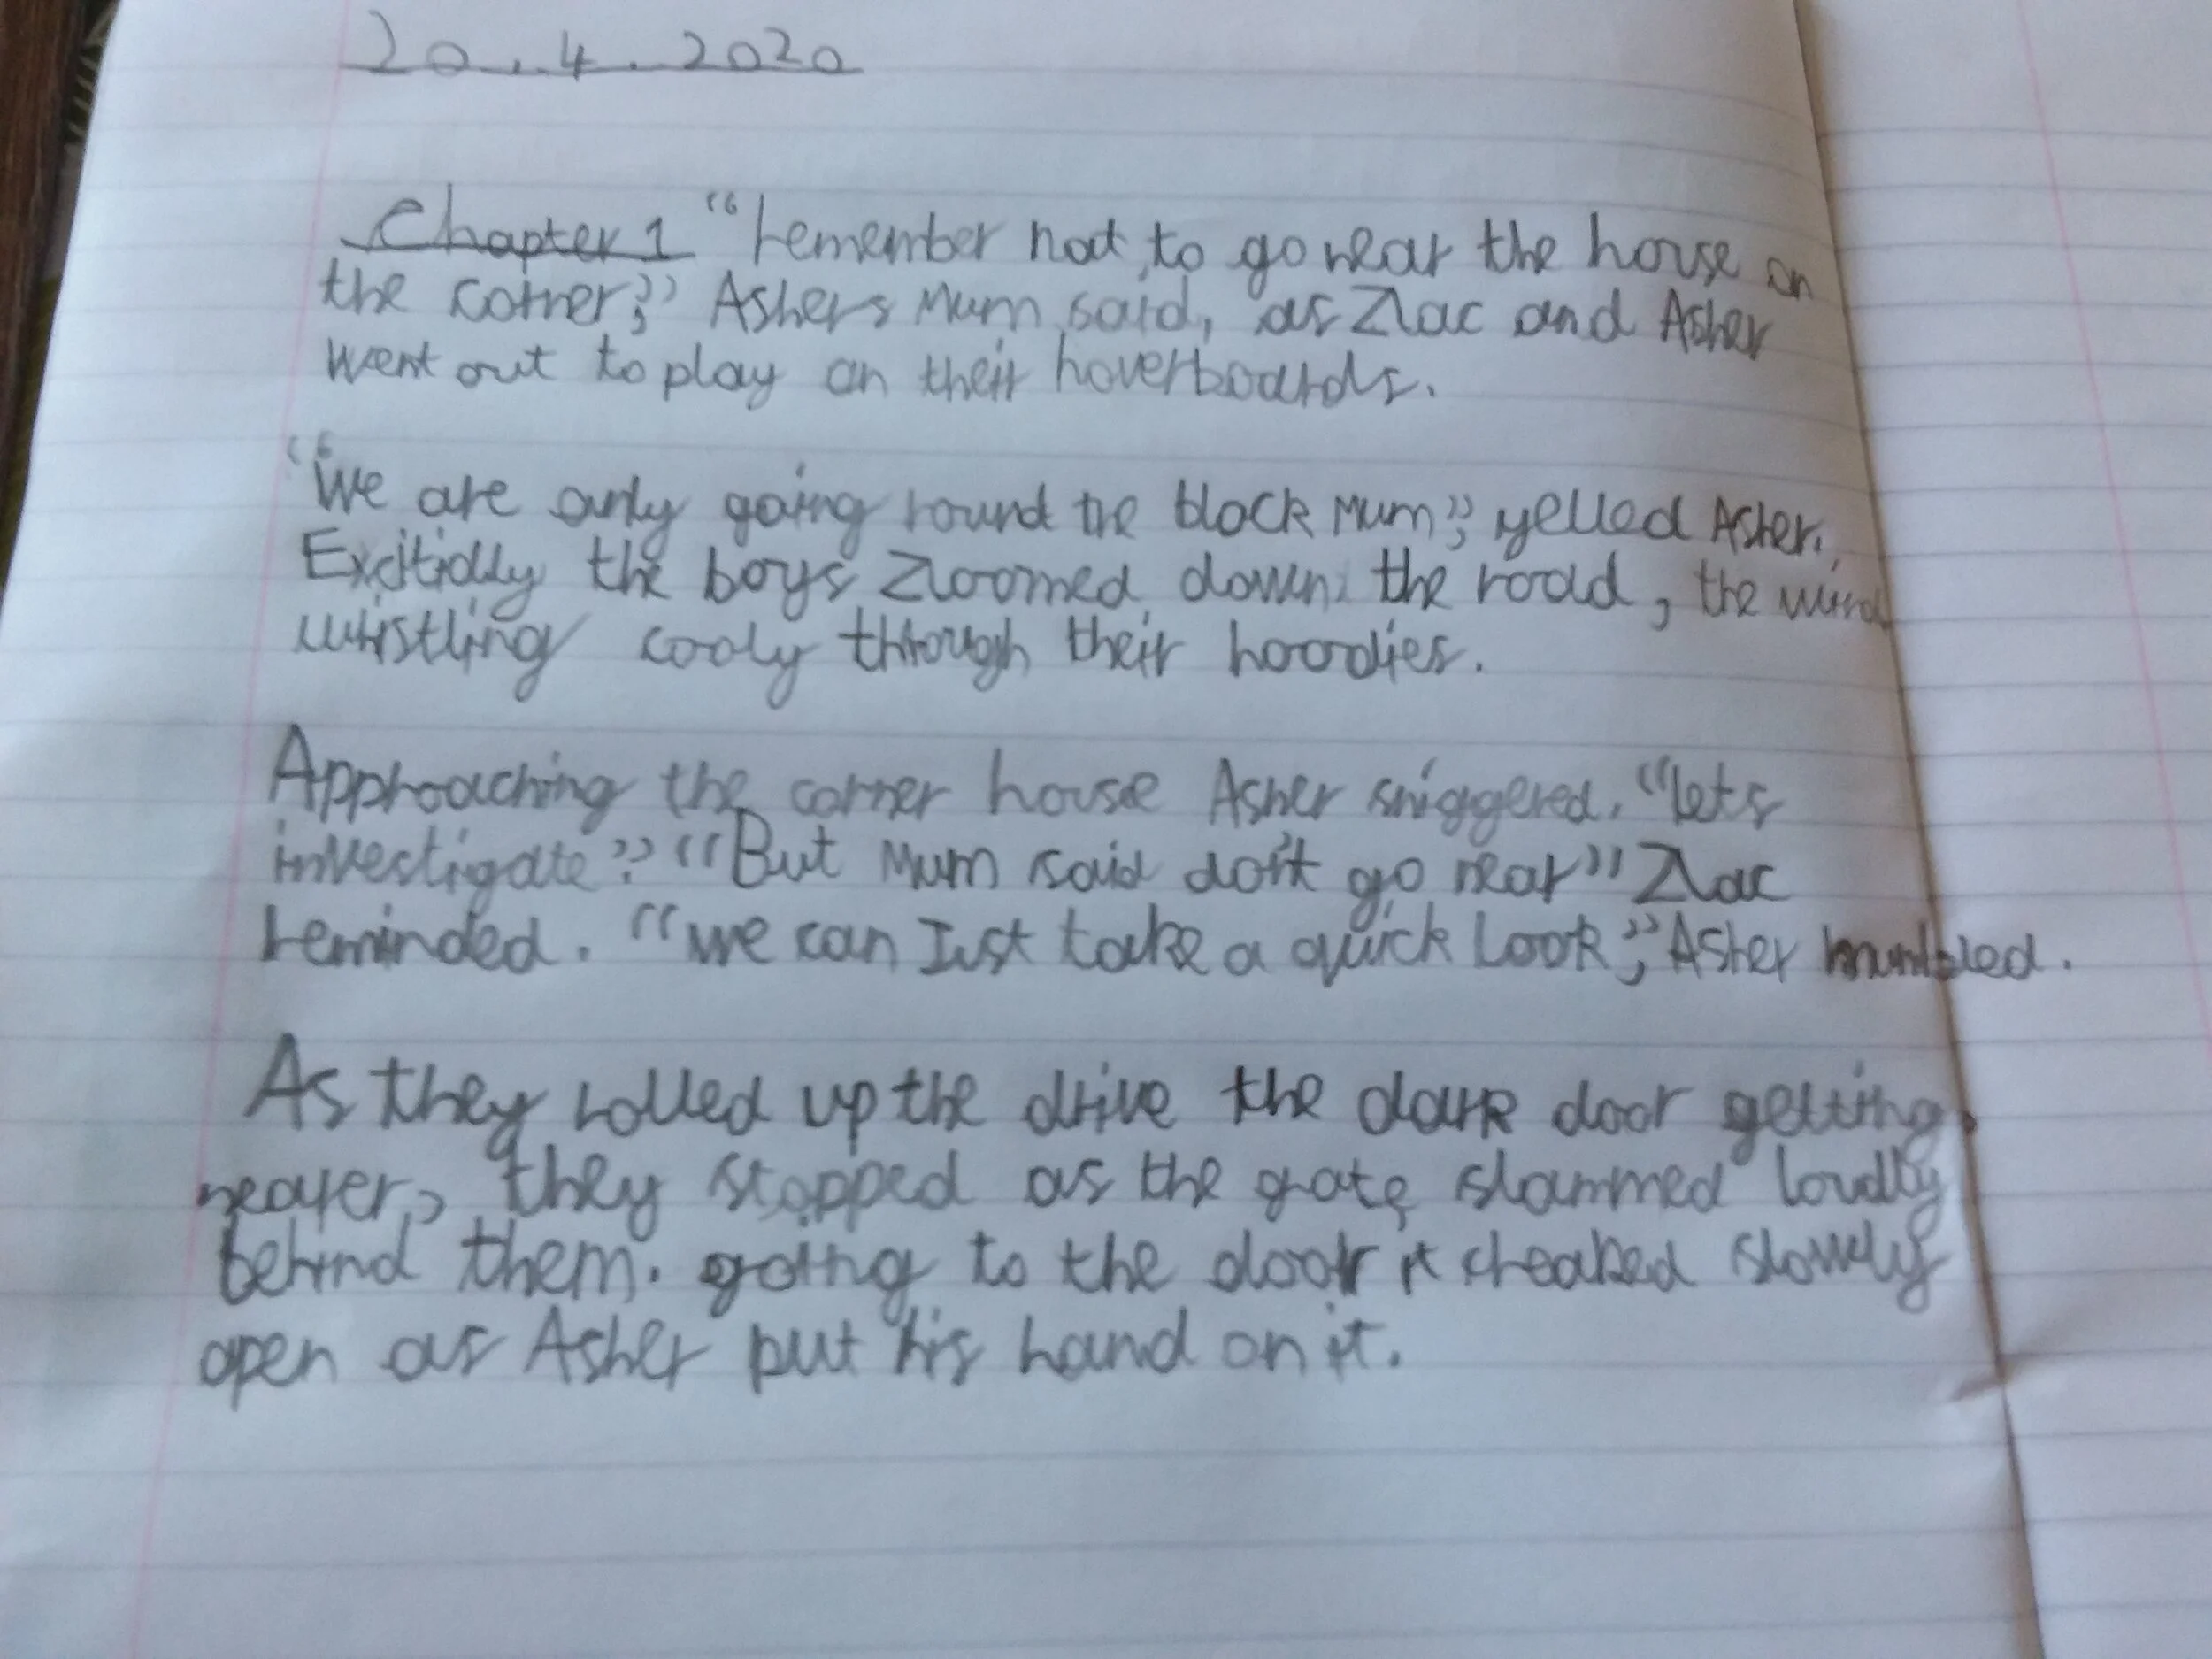 20.4.2020
Chapter 1 "remember not to go near the house on
the corner," Ashers Mum said, as Zac and Asher
went out to play on their hoverboards.
"We are only going round the block Mum", yelled Asher.
Excitidly the boys zoomed down the road, the wind
whistling cooly through their hoodies.
Approaching the corner house Asher sniggered. "lets
investigate?" "But Mum said don't go near" Zac
reminded. "we can Just take a quick Look," Asher mumbled.
As they rolled up the drive the dark door getting
nearer, they stopped as the gate slammed loudly
behind them. going to the door it creaked slowely
open as Asher put his hand on it.